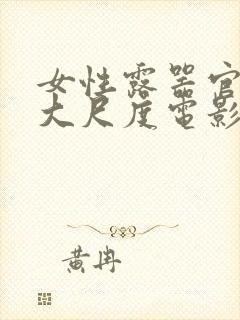 女性露器官
大尺度電影
黃冉